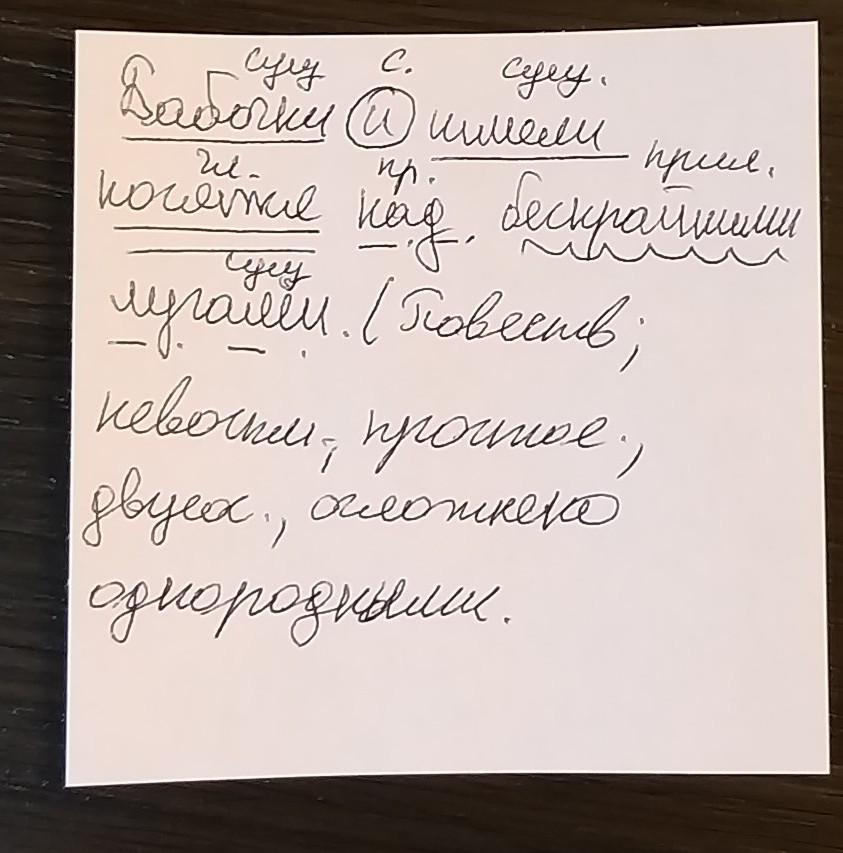 сущ с. сущ.
Бабочки и шмели
гл. пр. прил.
над бескрайними
сущ
лугами. (Повеств;
невоскл., простое.,
двусос., осложнено
однородными.